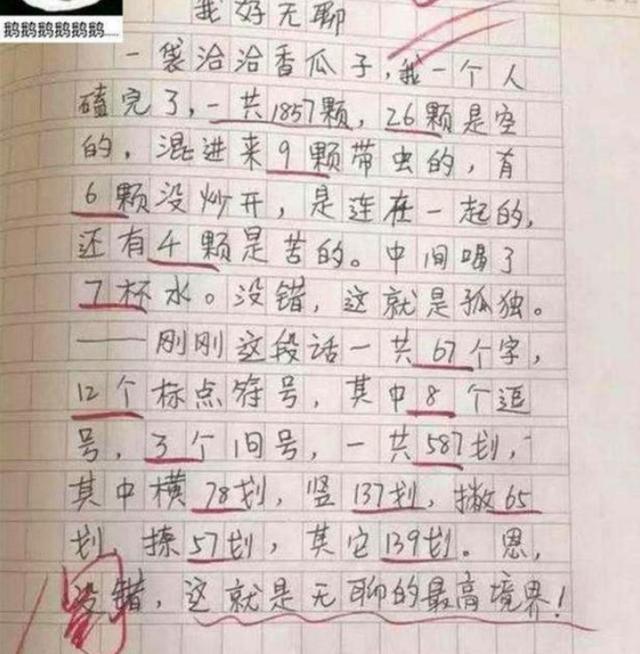 鹅鹅鹅鹅鹅鹅......
我好无聊
一袋洽洽香瓜子,我一个人
磕完了,一共1857颗,26颗是空
的,混进来9颗带虫的,有
6颗没炒开,是连在一起的,
还有4颗是苦的。中间喝了
7杯水。没错,这就是孤独。
——刚刚这段话一共67个字,
12个标点符号,其中8个逗
号,3个旧号,一共587划,
其中横78划,竖137划,撇65
划,捺57划,其它139划。恩,
没错,这就是无聊的最高境界!